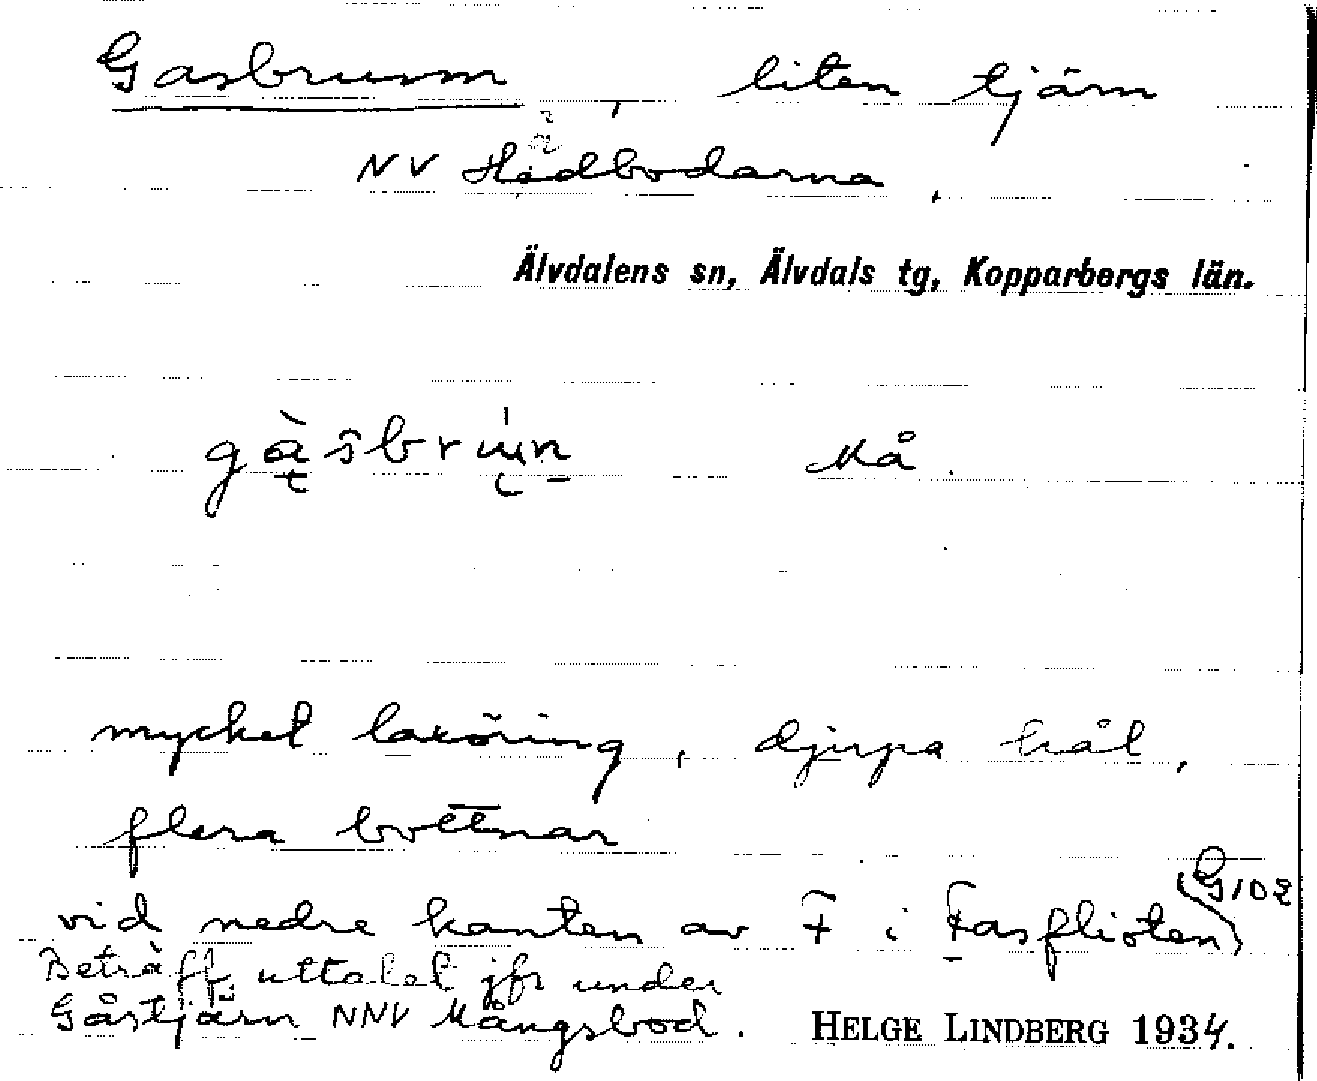 Gasbrunn, liten tjärn
ä
NV Hedbodarna,
Älvdalens sn, Älvdals tg, Kopparbergs län.
Må.
mycket laxöring, djupa hål,
flera bottnar
(G102
vid nedre kanten av F i Fasflioten)
Beträff. uttalet jfr under
Gåstjärn NNV Mångsbod. HELGE LINDBERG 1934.